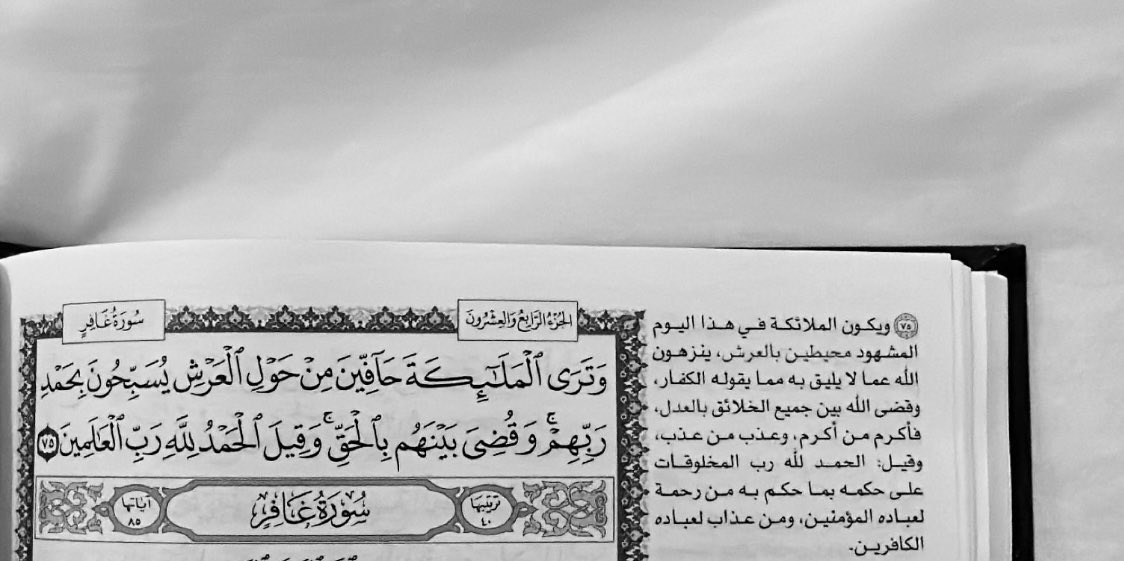 الجزء الرابع والعشرون
سورة غافر
وَتَرَى ٱلْمَلَٰٓئِكَةَ حَآفِّينَ مِنْ حَوْلِ ٱلْعَرْشِ يُسَبِّحُونَ بِحَمْدِ
رَبِّهِمْۖ وَقُضِىَ بَيْنَهُم بِٱلْحَقِّۚ وَقِيلَ ٱلْحَمْدُ لِلَّهِ رَبِّ ٱلْعَٰلَمِينَ ٧٥
ترتيبها ٤٠
سُورَةُ غَافِرٍ
آياتها ٨٥
٧٥ ويكون الملائكة في هذا اليوم
المشهود محيطين بالعرش، ينزهون
الله عما لا يليق به مما يقوله الكفار،
وقضى الله بين جميع الخلائق بالعدل،
فأكرم من أكرم، وعذب من عذب،
وقيل: الحمد لله رب المخلوقات
على حكمه بما حكم به من رحمة
لعباده المؤمنين، ومن عذاب لعباده
الكافرين.